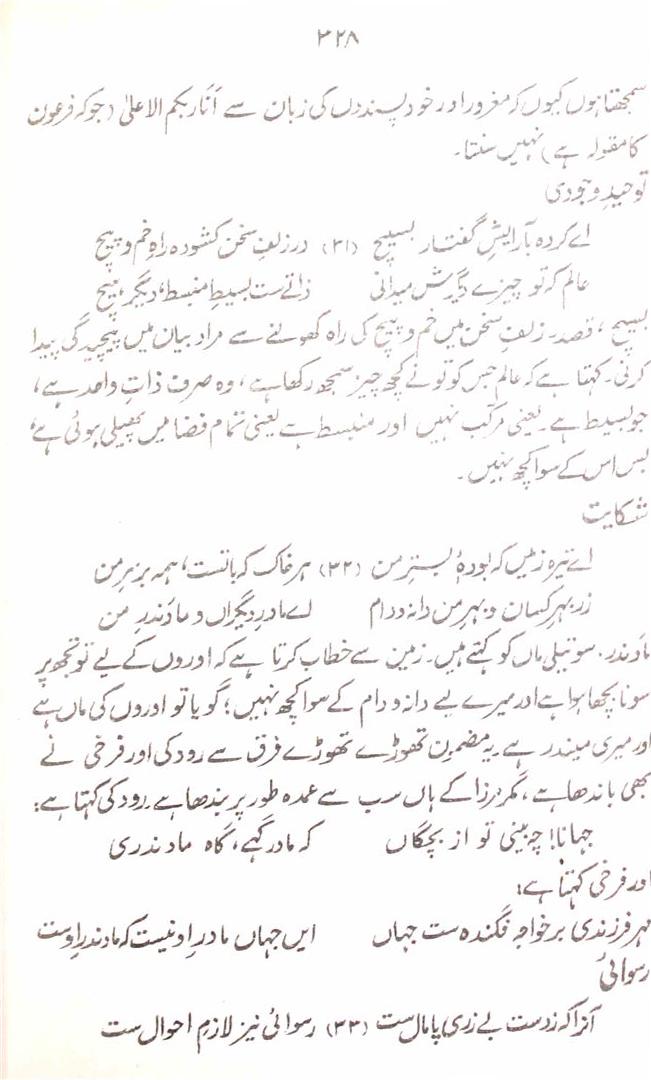 ۳۲۸
سمجھتا ہوں کیوں کہ مغرور اور خود پسندوں کی زبان سے اَنَا ربکم الاعلیٰ (جو کہ فرعون
کا مقولہ ہے) نہیں سنتا۔
توحیدِ وجودی
اے کردہ بآرایشِ گفتار بسیچ (۳۱) در زلفِ سخن کشودہ راہِ خم و پیچ
عالم کہ تو چیزے دگرش میدانی ذاتے ست بسیطِ منبسط، دیگر ہیچ
بسیچ، قصد۔ زلفِ سخن میں خم و پیچ کی راہ کھولنے سے مراد بیان میں پیچیدگی پیدا
کرنی۔ کہتا ہے کہ عالم جس کو تو نے کچھ چیز سمجھ رکھا ہے، وہ صرف ذاتِ واحد ہے،
جو بسیط ہے۔ یعنی مرکب نہیں اور منبسط ہے یعنی تمام فضا میں پھیلی ہوئی ہے،
بس اس کے سوا کچھ نہیں۔
شکایت
اے تیرہ زمیں کہ بودۂ بسترِ من (۳۲) ہر خاک کہ باتست، ہمہ بر سرِ من
زر بہر کسان و بہرِ من دانہ و دام اے مادرِ دیگراں و مادندرِ من
مادندر۔ سوتیلی ماں کو کہتے ہیں۔ زمین سے خطاب کرتا ہے کہ اوروں کے لیے تو تجھ پر
سونا بچھا ہوا ہے اور میرے لیے دانہ و دام کے سوا کچھ نہیں؛ گویا تو اوروں کی ماں ہے
اور میری میندر ہے۔ یہ مضمون تھوڑے تھوڑے فرق سے رودکی اور فرخی نے
بھی باندھا ہے، مگر مرزا کے ہاں سب سے عمدہ طور پر بندھا ہے۔ رودکی کہتا ہے:
جہانا! چہ بینی تو از بچگاں کہ مادر گہے، گاہ مادندری
اور فرخی کہتا ہے:
مہر فرزندی بر خواجہ فگندہ ست جہاں ایں جہاں مادرِ او نیست کہ مادندرِ اوست
رسوائی
آنرا کہ ز دست بے زری پامال ست (۳۳) رسوائی نیز لازمِ احوال ست